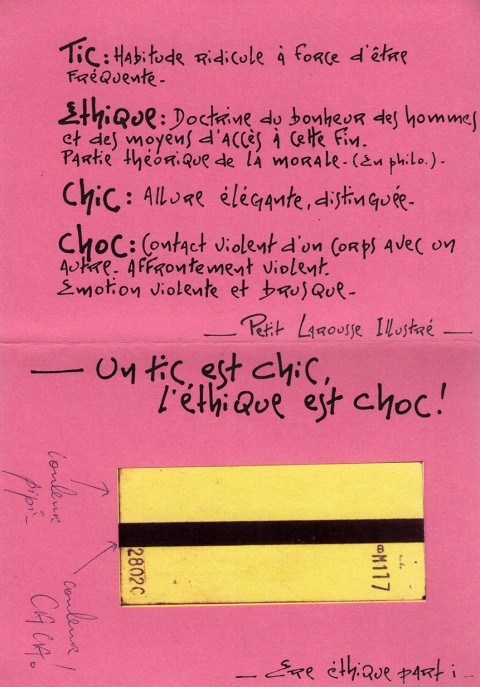 Tic : Habitude ridicule à force d'être
fréquente.
Ethique : Doctrine du bonheur des hommes
et des moyens d'accès à cette fin.
Partie théorique de la morale. (En philo.).
Chic : Allure élégante, distinguée.
Choc : Contact violent d'un corps avec un
autre. Affrontement violent.
Emotion violente et brusque.
— Petit Larousse Illustré —
— Un tic est chic,
l'éthique est choc !
couleur
pipi
couleur !
CACA.
2802C
8M117
— Ere éthique part i —